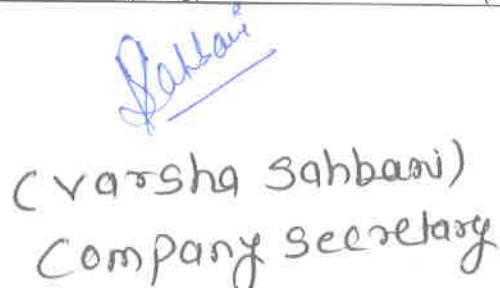 Sahbani
(Varsha Sahbani)
Company Secretary